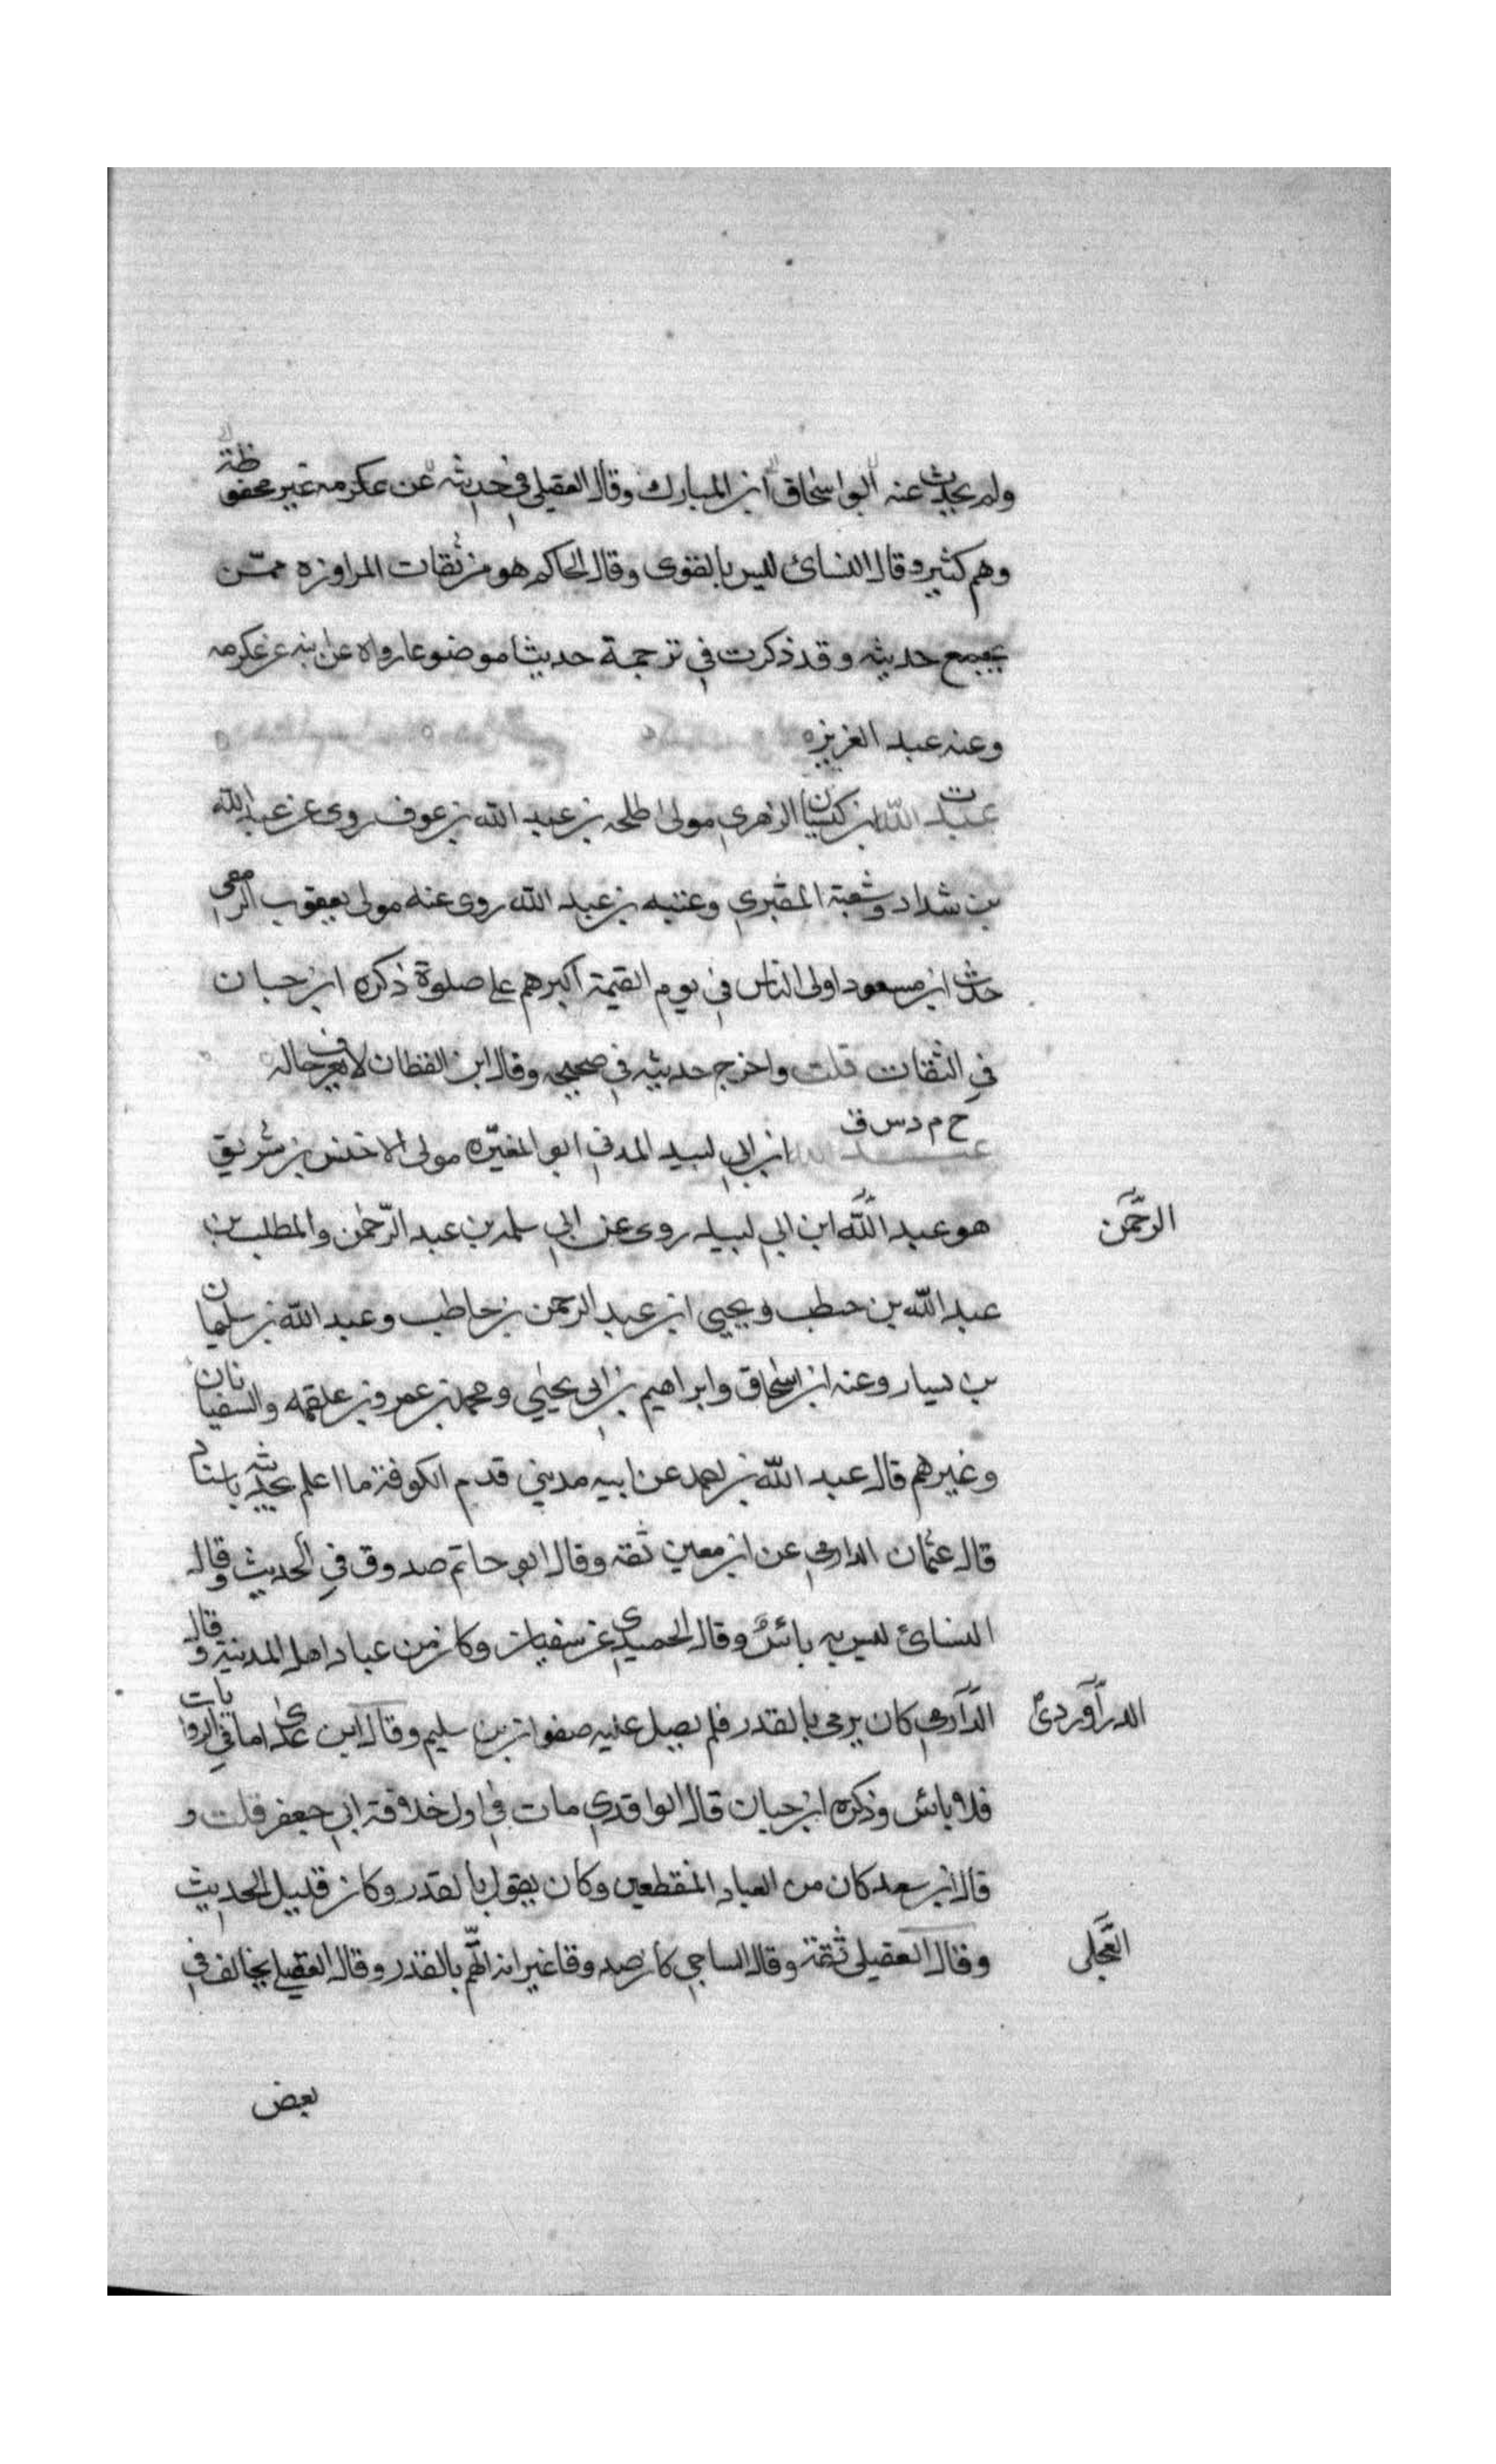 ولم يحدث عنه ابو اسحاق ابن المبارك وقال العقيلي في حديثه عن عكرمه غير محفوظة
وهم كثير وقال النسائ ليس بالقوى وقال الحاكم هو من ثقات المراوزه ممن
يجمع حديثه وقد ذكرت في ترجمة حديثا موضوعا رواه عن ابنه عن عكرمه
وعنه عبد العزيزه
ت
عبد الله بن كيسان الزهري مولى طلحه بن عبد الله بن عوف روى عن عبد الله
بن شداد وشعبة المقبري وعتبه بن عبد الله روى عنه مولى يعقوب الزمعي
حديث ابن مسعود اولى الناس في يوم القيمة اكبرهم على صلوة ذكره ابن حبان
في الثقات قلت واخرج حديثه في صحيحه وقال ابن القطان لا يعرف حاله
خ م د س ق
عبد الله ابن ابي لبيد المدني ابو المغيره مولى الاخنس بن شريق
هو عبد الله ابن ابي لبيد روى عن ابي سلمه بن عبد الرحمن والمطلب بن
الرحمن
عبد الله بن حطب ويحيى ابن عبد الرحمن بن حاطب وعبد الله بن سليمان
بن يسار وعنه ابن اسحاق وابراهيم بن ابي يحيى ومحمد بن عمرو بن علقمه والسفيانان
وغيرهم قال عبد الله بن احمد عن ابيه مديني قدم الكوفة ما اعلم بحديثه باسا
قال عثمان الدارمي عن ابن معين ثقه وقال ابو حاتم صدوق في الحديث وقال
النسائ ليس به بائس وقال الحميدي عن سفيان وكان من عباد اهل المدينة وقال
الدارمي كان يرمى بالقدر فلم يصل عليه صفوان بن سليم وقال ابن عدى اما في الروايات
الدرآوردي
فلا بائس وذكره ابن حبان قال الواقدي مات في اول خلافة ابي جعفر قلت و
قال ابن سعد كان من العباد المنقطعين وكان يقول بالقدر وكان قليل الحديث
وقال العقيلى ثقة وقال الساجي كان صدوقا غير انه اتهم بالقدر وقال العقيلي يخالف في
العجلى
بعض